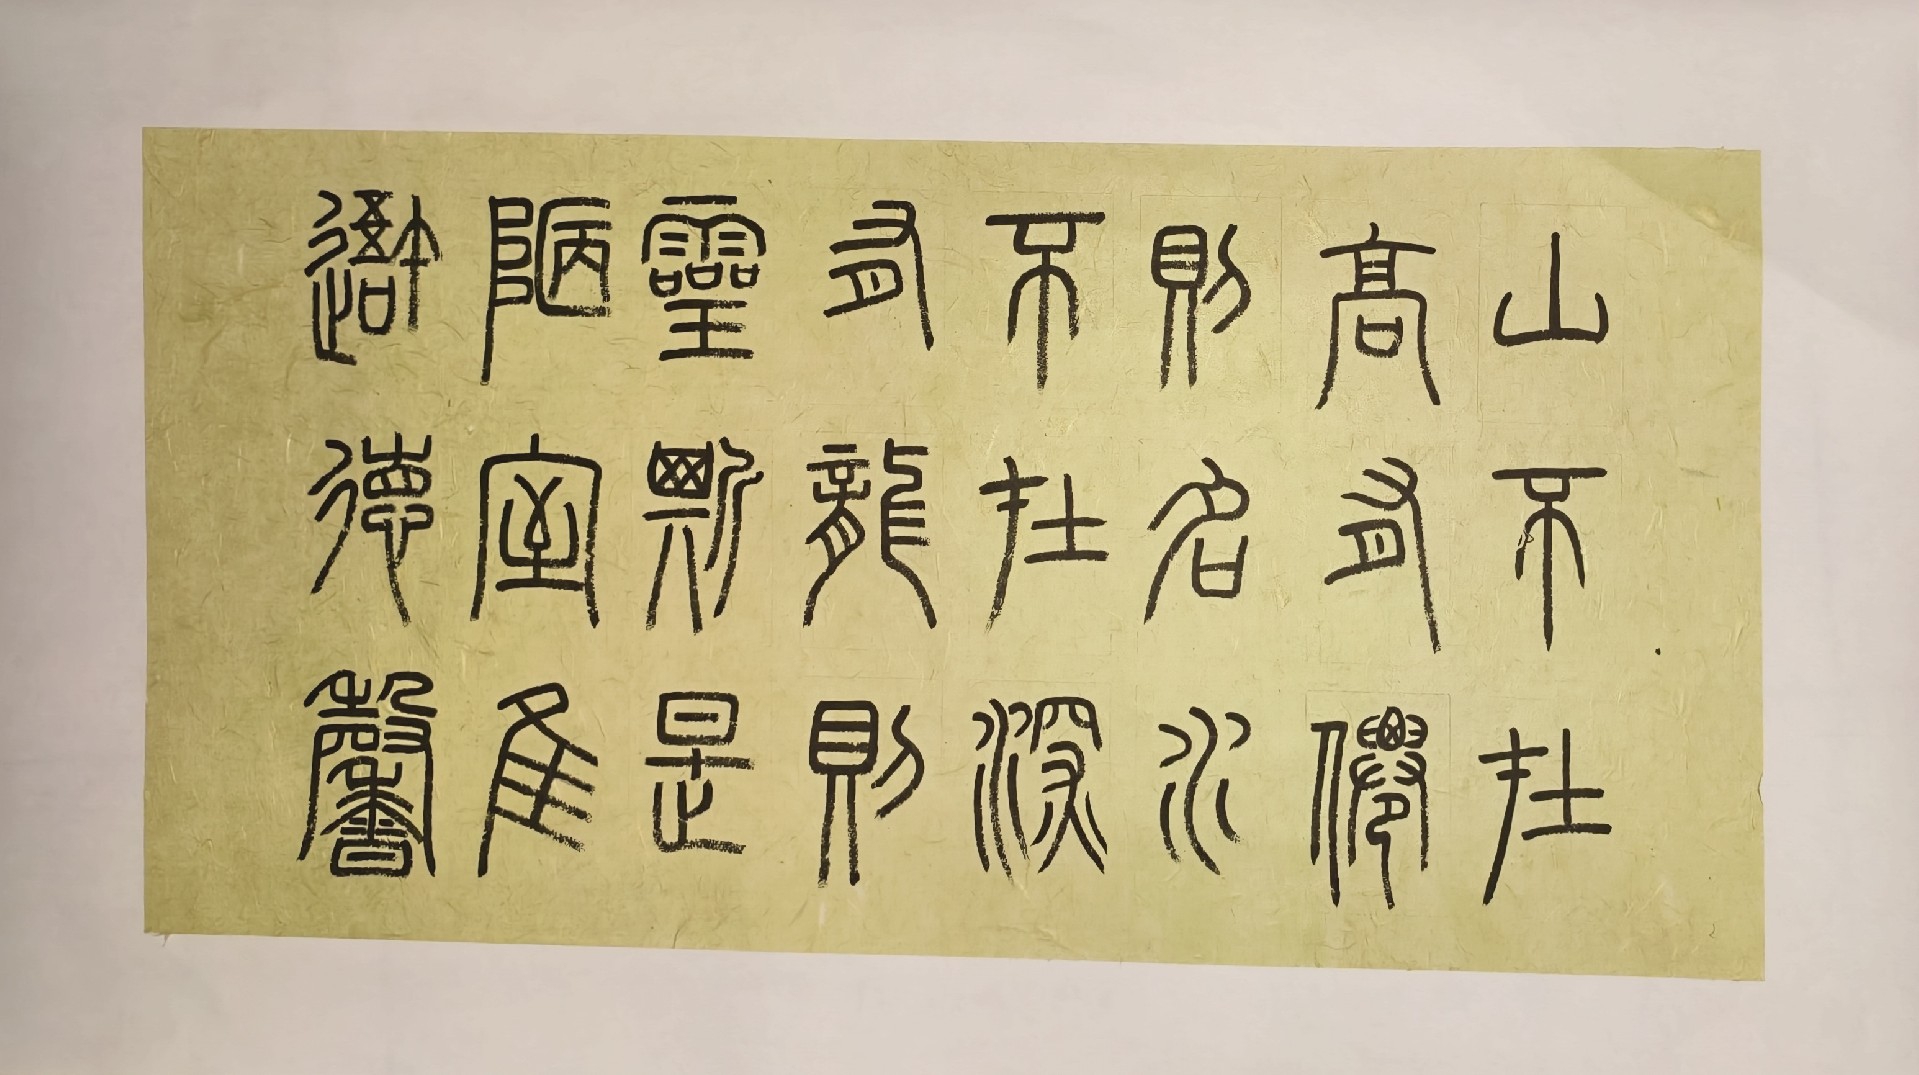 山不在
高有僊
則名水
不在深
有龍則
靈斯是
陋室隹
吾德馨